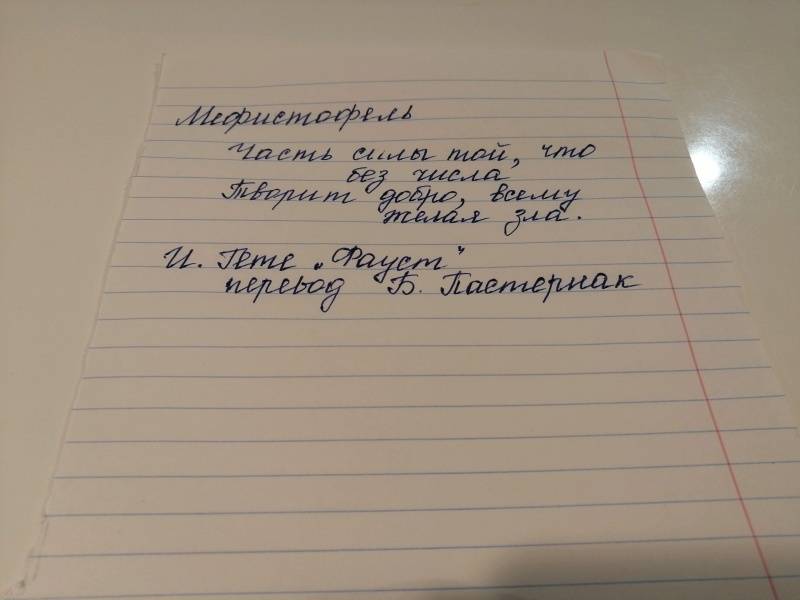 Мефистофель
Часть силы той, что
без числа
Творит добро, всему
желая зла.
И. Гёте „Фауст"
перевод Б. Пастернак